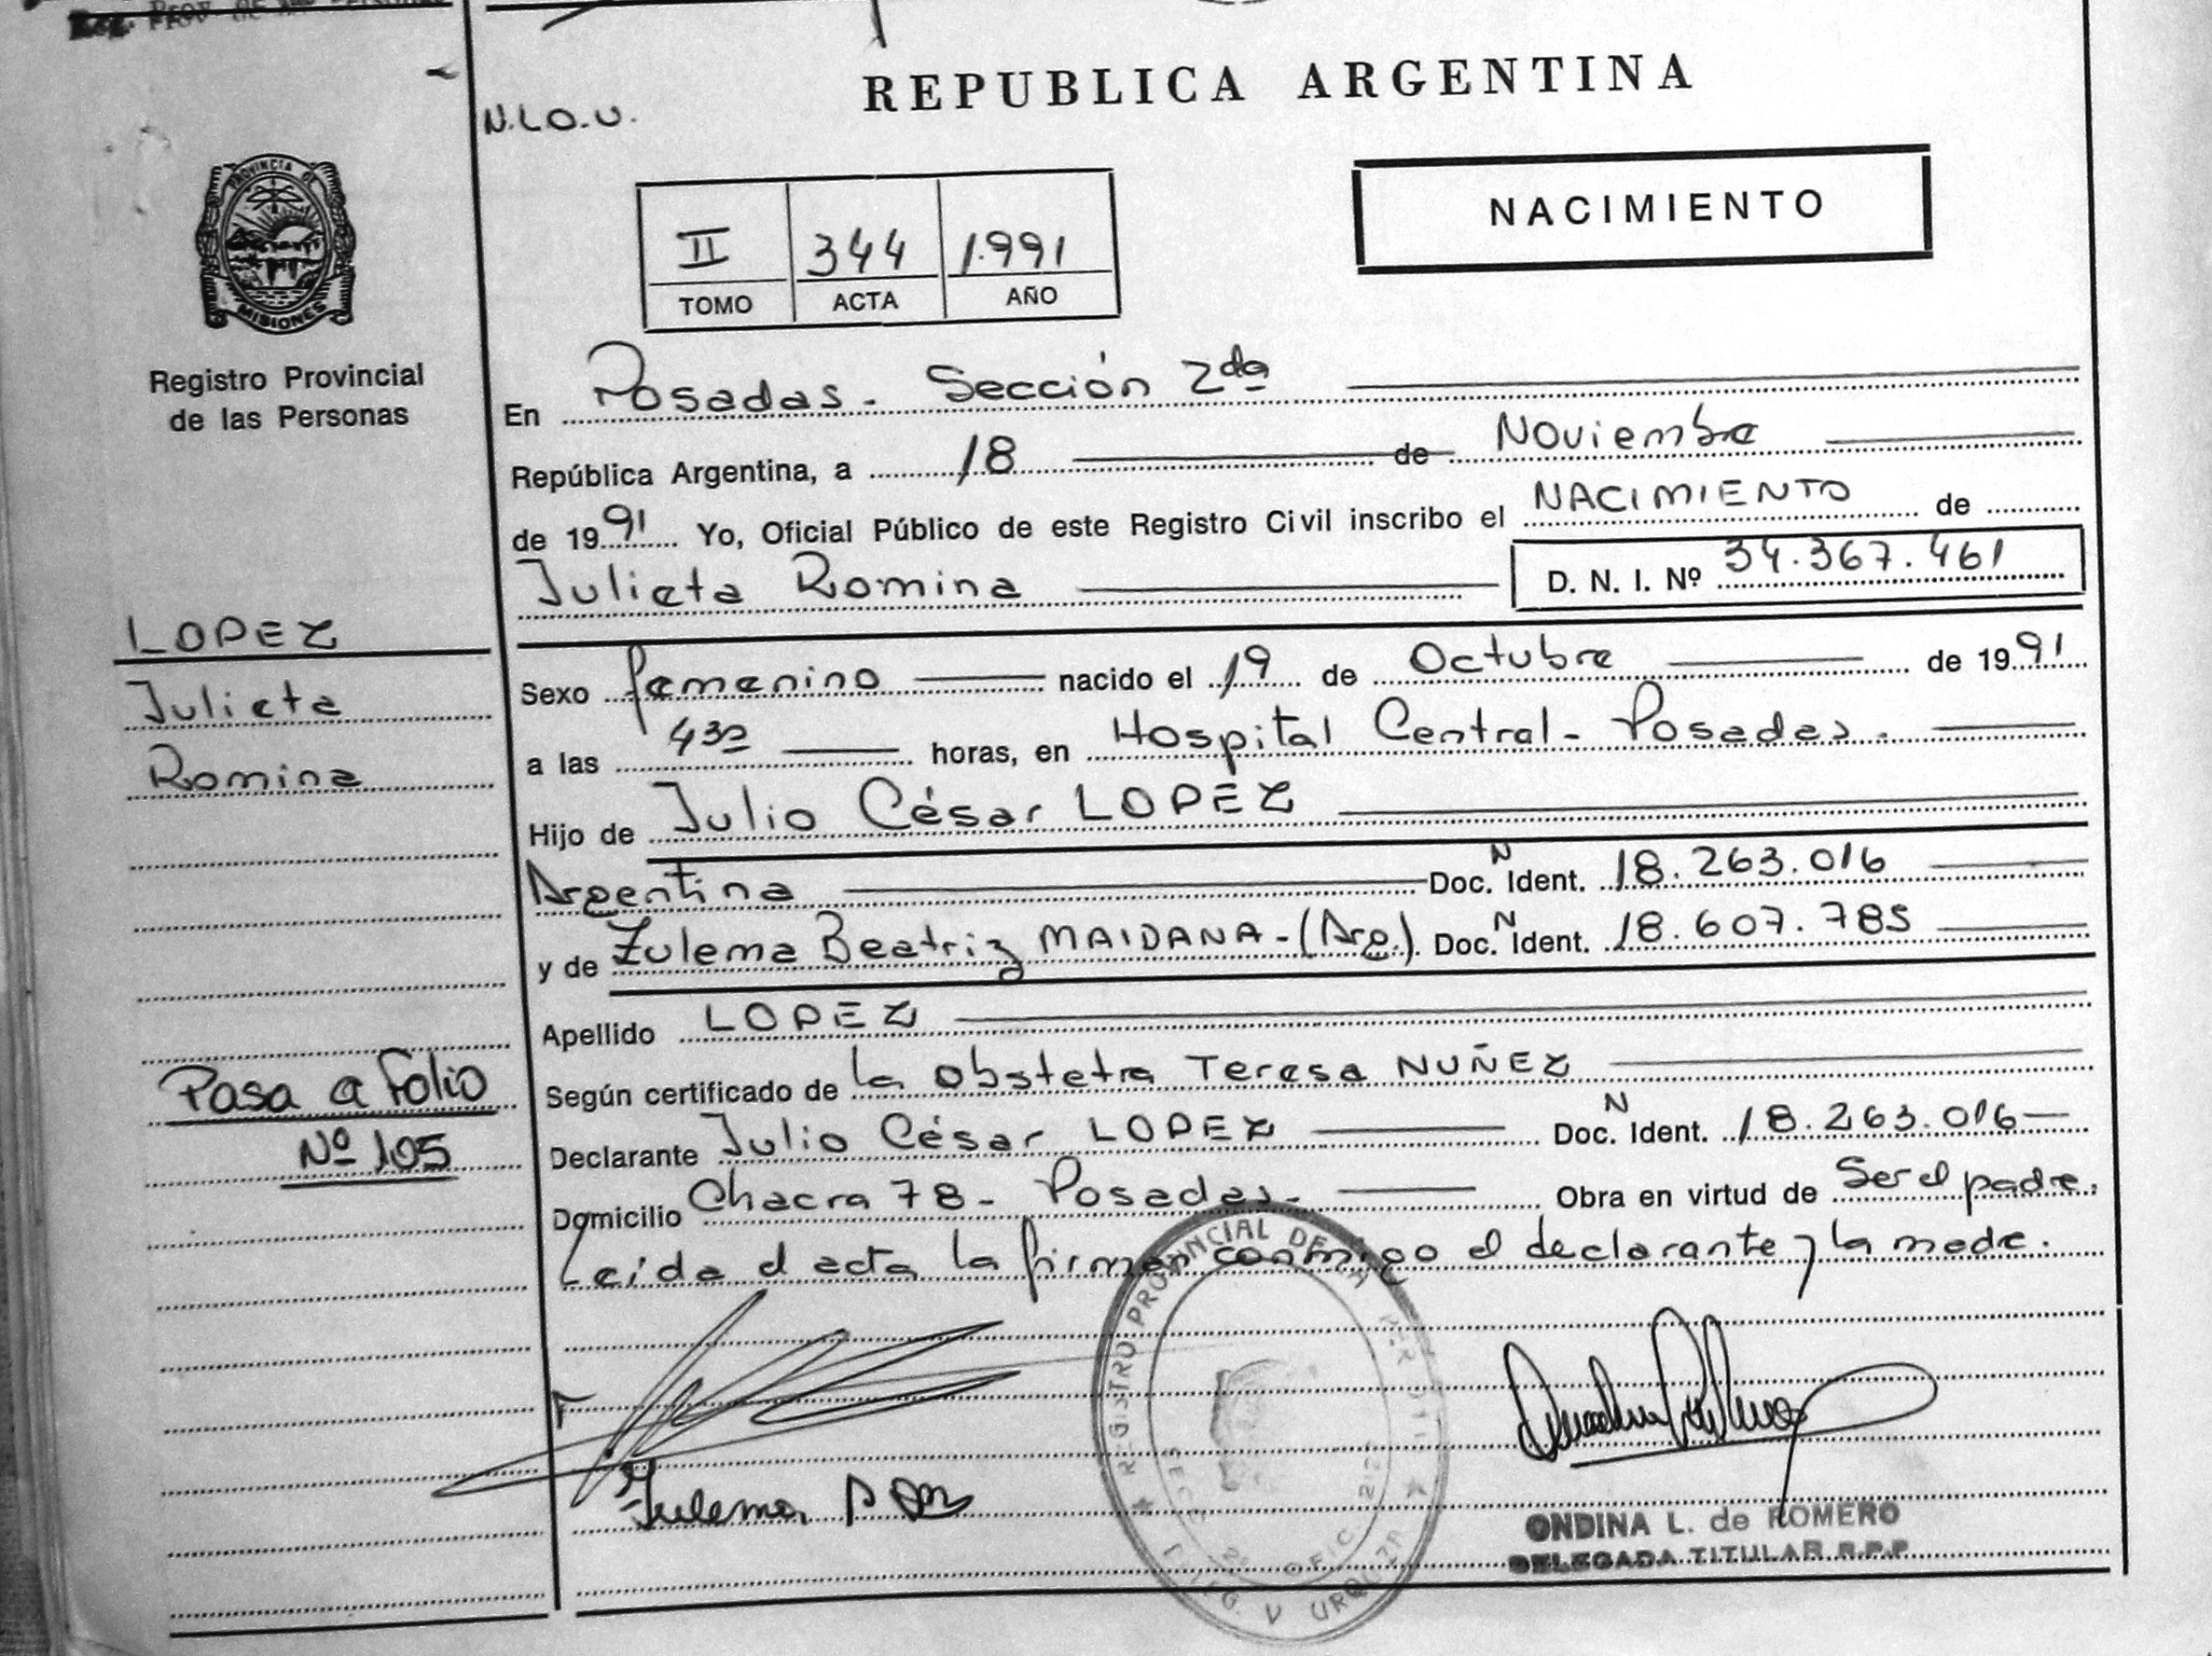 REPUBLICA ARGENTINA
N.L.O.U.
NACIMIENTO
II 344 1.991
TOMO ACTA AÑO
PROVINCIA DE
MISIONES
Registro Provincial
de las Personas
LOPEZ
Julieta
Romina
Pasa a folio
Nº 105
En Posadas - Sección 2da
República Argentina, a 18 de Noviembre
de 1991 Yo, Oficial Público de este Registro Civil inscribo el NACIMIENTO de
Julieta Romina D. N. I. Nº 34.367.461
Sexo femenino nacido el 19 de Octubre de 1991
a las 4³⁰ horas, en Hospital Central - Posadas.
Hijo de Julio César LOPEZ
Argentina Doc. N Ident. 18.263.016
y de Zulema Beatriz MAIDANA - (Arg.) Doc. N Ident. 18.607.785
Apellido LOPEZ
Según certificado de la obstetra Teresa NUÑEZ
Declarante Julio César LOPEZ Doc. N Ident. 18.263.016
Domicilio Chacra 78 - Posadas - Obra en virtud de Ser el padre.
Leída el acta la firman conmigo el declarante y la madre.
REGISTRO PROVINCIAL DE
Zulema
ONDINA L. de ROMERO
DELEGADA TITULAR R.P.P.